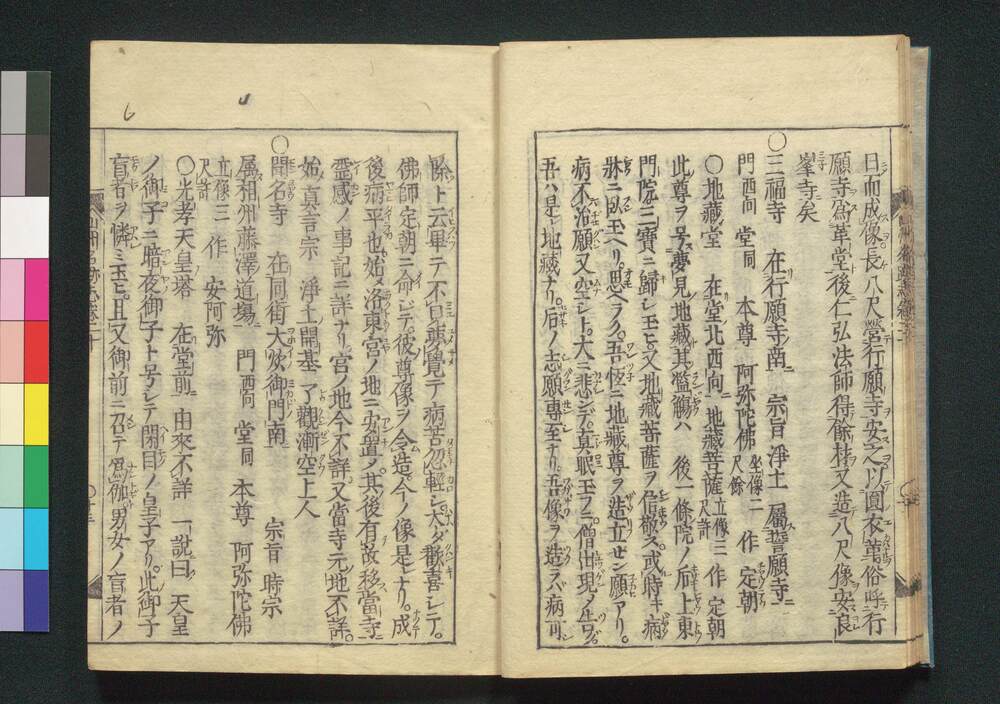 日而成像長八尺營行願寺安之以圓衣革俗呼行
願寺為革堂後仁弘法師得餘桂又造八尺像安良
峯寺矣
〇三福寺　在行願寺南　宗旨淨土　屬誓願寺
門西向　堂同　本尊　阿弥陀佛坐像二尺餘　作　定朝
〇地藏堂　在堂北西向　地藏菩薩立像三尺許　作　定朝
此尊ヲ号夢見地藏其濫觴ハ　後一條院ノ后上東
門院三寶ニ歸シ玉ヒ又地藏菩薩ヲ信敬ス或時キ病
牀ニ臥玉ヘリ思ヘラク吾恆ニ地藏尊ヲ造立セン願アリ
病不治願又空シト大ニ悲シデ真眠玉フニ僧出現ノ告ク
吾ハ是レ地藏ナリ后ノ志願專至ナリ吾像ヲ造ラバ病可
除ト云畢テ不日頭覺テ病苦忽輕シ大ダ歡喜シテ
佛師定朝ニ命シテ彼尊像ヲ令造今ノ像是ナリ成
後病平也始メ洛東宮ノ地ニ安置ノ其後有故移當寺
靈感ノ事記ニ詳ナリ宮ノ地今不詳又當寺元地不詳
始真言宗　淨土開基　了觀漸空上人
〇聞名寺　在同街大炊御門南　宗旨　時宗
屬相州藤澤道場　門西向　堂同　本尊　阿弥陀佛
立像三尺許　作　安阿弥
〇光孝天皇塔　在堂前　由來不詳　一說曰　天皇
ノ御子ニ暗夜御子ト号シテ閉目ノ皇子アリ此御子
盲者ヲ憐ミ玉ヒ且又御前ニ召テ為伽男女ノ盲者ノ